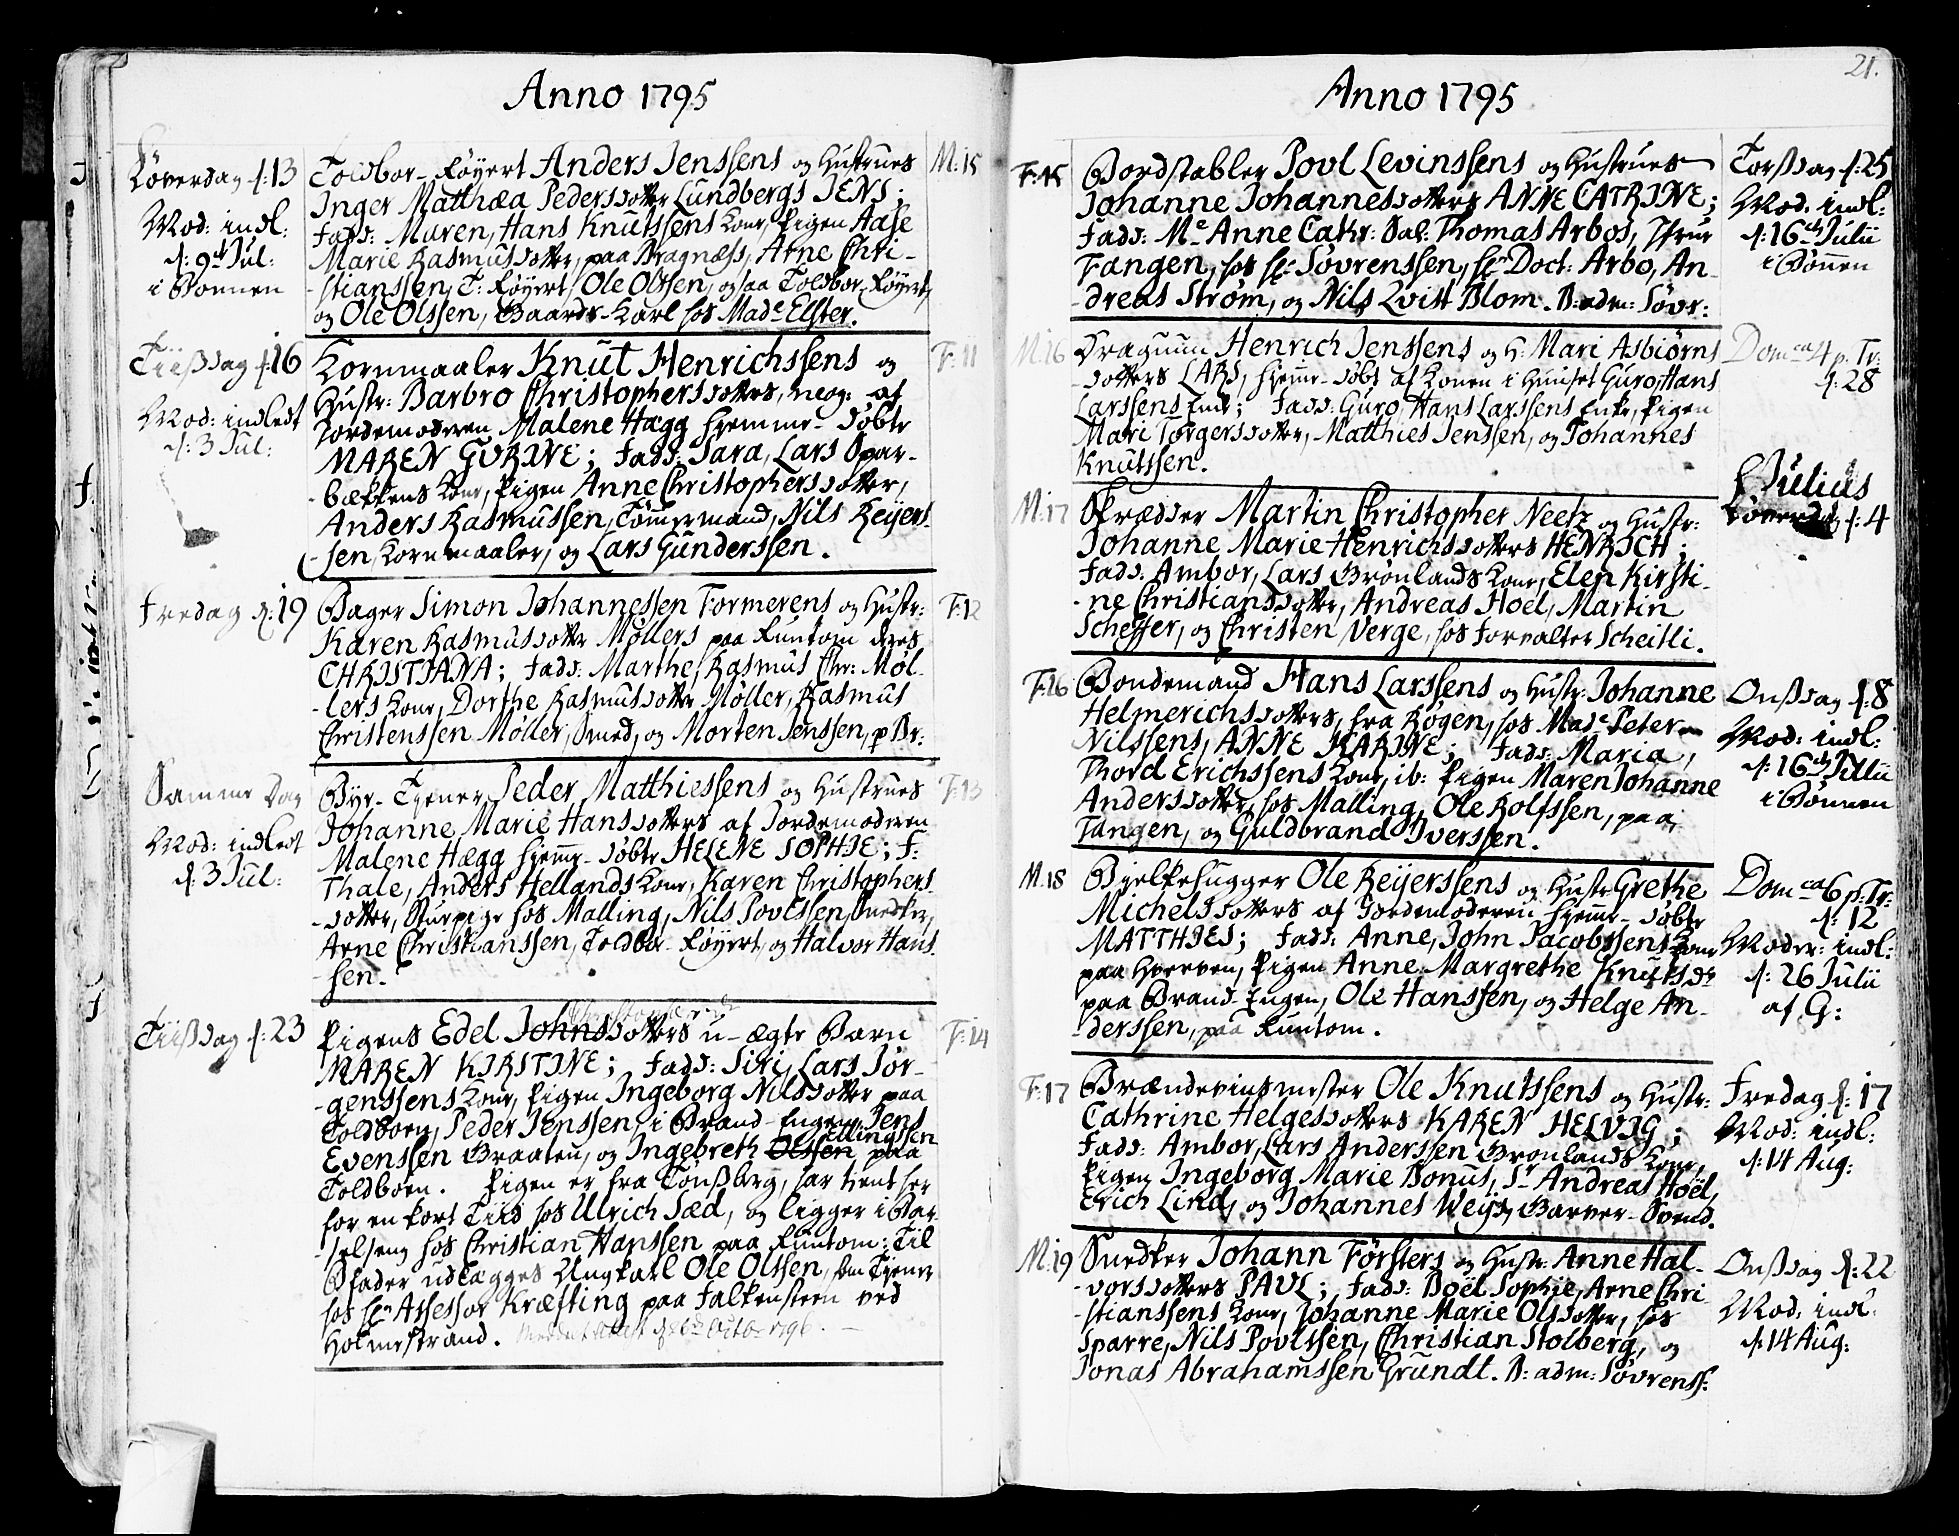 Anno 1795
Løverdag d: 13
Mod: indl:
d: 9de Jul:
i Bønnen
Toldbor-Røyert Anders Jenssens og Hustrues
Inger Matthæa Pedersdotter Lundbergs JENS;
Fadd: Maren, Hans Knutssens Kone, Pigen Aase
Marie Rasmusdotter, paa Bragnæss, Arne Chri-
-stianssen, T: Røyert, Ole Olssen, ogsaa Toldbor-Røyert,
og Ole Olssen, Gaards-Karl hos Made Elster.
M: 15
Tiisdag d: 16
Mod: indledt
d: 3 Jul:
Kornmaaler Knut Henrichssens og
Hustr: Barbro Christophersdotters, neog: af
Jordemodren Malene Hægg hjemme-døbte
MAREN GURINE; Fadd: Sara, Lars Spar-
-bækkens Kone, Pigen Anne Christophersdotter,
Anders Rasmussen, Tømermand, Nils Reijers-
-sen, Kornmaaler, og Lars Gunderssen.
F: 11
Fredag d: 19
Bager Simon Johannessen Formerens og Hustr:
Karen Rasmusdotter Møllers paa Runtom deres
CHRISTIANA; Fadd: Marthe, Rasmus Chr: Møl-
-lers Kone, Dorthe Rasmusdotter Møller, Rasmus
Christenssen Møller, Smed, og Morten Jenssen, p Br:
F: 12
Samme Dag
Mod: indledt
d: 3 Jul:
Byr-Tjener Peder Matthiessens og Hustrues
Johanne Marie Hansdotters af Jordemoderen
Malene Hægg hjeme-døbte HELENE SOPHIE; F:
Thale, Anders Hellands Kone, Karen Christophers-
-dotter, Stuepige hos Malling, Nils Povelssen, Snedker,
Arne Christianssen, Toldbor-Røyert, og Halvor Hans-
-sen.
F: 13
Tiisdag d: 23
Pigens Edel Johnsdotters u-ægte Barn
MAREN KIRSTINE; Fadd: Siri, Lars Jør-
-genssens Kone, Pigen Ingeborg Nilsdotter paa
Toldboen, Peder Jenssen, i Brand-Engen, Jens
Ellingssen
Evenssen Braaten, og Ingebreth Olssen paa
Toldboen. Pigen er fra Tønsberg, har tient her
for en kort Tiid hos Ulrich Sæd, og ligger i Bar-
-selseng hos Christian Hanssen paa Runtom; Til
Bfader udlægges Ungkarl Ole Olssen, som Tjener
hos Hr Assessor Kræfting paa Falkensteen ved
Holmestrand.
F: 14
Anno 1795
21.
F: 15
Bordstabler Povl Levinssens og Hustrues
Johanne Johannesdotters ANNE CATRINE;
Fadd: Me Anne Cathr: Sal: Thomas Arbos, Jfrue
Fangen, hos Hr Søvrenssen, Hr Doct: Arbo, An-
-dreas Strøm, og Nils Qvist Blom. B: adm: Søvr:
Torsdag d: 25
Mod. indl:
d: 16de Julii
i Bønnen
M: 16
Dragoun Henrich Jenssens og H: Mari Asbiørns-
-dotters LARS, hjeme-døbt af Konen i Huuset Guro, Hans
Larssens Enke; Fadd: Guro, Hans Larssens Enke, Pigen
Mari Torgersdotter, Matthies Jenssen, og Johannes
Knutssen.
Domca 4 p. Tr:
d: 28
Julius
Løverdag d: 4
M: 17
Skrædder Martin Christopher Neetz og Hustr:
Johanne Marie Henrichsdotters HENRICH;
Fadd: Ambor, Lars Grønlands Kone, Elen Kirsti-
-ne Christiansdotter, Andreas Hoel, Martin
Scheffer, og Christen Verge, hos Forvalter Scheitli.
F: 16
Bondemand Hans Larssens og Hustr: Johanne
Helmerichsdotters, fra Røgen, hos Made Peter
Nilssens, ANNE KARINE; Fadd: Maria,
Thord Erichssens Kone, ib: Pigen Maren Johanne
Andersdotter, hos Malling, Ole Rolfssen, paa
Tangen, og Guldbrand Iverssen.
Onsdag d: 8
Mod: indl:
d: 16de Julii
i Bønnen
M: 18
Bjelkehugger Ole Reijerssens og Hustr Grethe
Michelsdotters af Jordemoderen hjeme-døbte
MATTHIES; Fadd: Anne, John Jacobssens Kone
paa Hverven, Pigen Anne Margrethe Knutsdr
paa Brand-Engen, Ole Hanssen, og Helge An-
-derssen, paa Runtom.
Domca 6 p: Tr:
d: 12
Moder: indl:
d: 26 Julii
af G:
F: 17
Brændeviinsmester Ole Knutssens og Hustr:
Cathrine Helgesdotters KAREN HELVIG;
Fadd: Ambor, Lars Anderssen Grønlands Kone,
Pigen Ingeborg Marie Bonus, Sr Andreas Hoël,
Erich Lind, og Johannes Weijs, Garver-Svend.
Fredag d: 17
Mod: indl:
d: 14 Aug:
M: 19
Snedker Johann Försters og Hustr: Anne Hal-
-vorsdotters PAUL; Fadd: Boël Sophie, Arne Chri-
-stianssens Kone, Johanne Marie Olsdotter, hos
Sparre, Nils Povelssen, Christian Stolberg, og
Jonas Abrahamssen Grundt. B: adm: Søvrenss:
Onsdag d: 22
Mod: indl:
d: 14 Aug: